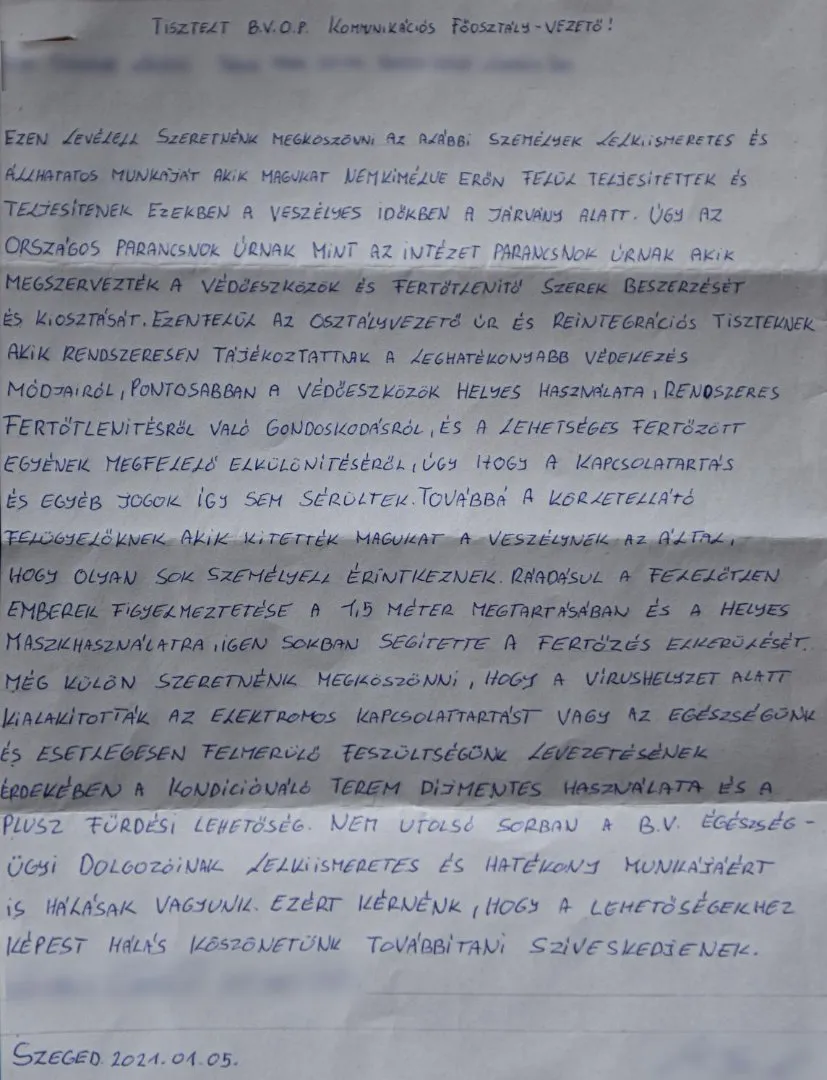 TISZTELT B.V.O.P. KOMMUNIKÁCIÓS FŐOSZTÁLY-VEZETŐ!
EZEN LEVÉLELL SZERETNÉNK MEGKÖSZÖNNI AZ ALÁBBI SZEMÉLYEK LELKIISMERETES ÉS
ÁLLHATATOS MUNKÁJÁT AKIK MAGUKAT NEMKIMÉLVE ERŐN FELÜL TELJESÍTETTEK ÉS
TELJESÍTENEK EZEKBEN A VESZÉLYES IDŐKBEN A JÁRVÁNY ALATT. ÚGY AZ
ORSZÁGOS PARANCSNOK ÚRNAK MINT AZ INTÉZET PARANCSNOK ÚRNAK AKIK
MEGSZERVEZTÉK A VÉDŐESZKÖZÖK ÉS FERTŐTLENÍTŐ SZEREK BESZERZÉSÉT
ÉS KIOSZTÁSÁT. EZENFELÜL AZ OSZTÁLYVEZETŐ ÚR ÉS REINTEGRÁCIÓS TISZTEKNEK
AKIK RENDSZERESEN TÁJÉKOZTATTNAK A LEGHATÉKONYABB VÉDEKEZÉS
MÓDJAIRÓL, PONTOSABBAN A VÉDŐESZKÖZÖK HELYES HASZNÁLATA, RENDSZERES
FERTŐTLENITÉSRŐL VALÓ GONDOSKODÁSRÓL, ÉS A LEHETSÉGES FERTŐZÖTT
EGYÉNEK MEGFELELŐ ELKÜLÖNITÉSÉRŐL, ÚGY HOGY A KAPCSOLATARTÁS
ÉS EGYÉB JOGOK ÍGY SEM SÉRÜLTEK. TOVÁBBÁ A KÖRLETELLÁTÓ
FELÜGYELŐKNEK AKIK KITETTÉK MAGUKAT A VESZÉLYNEK AZ ÁLTAL,
HOGY OLYAN SOK SZEMÉLYELL ÉRINTKEZNEK. RÁADÁSUL A FELELŐTLEN
EMBEREK FIGYELMEZTETÉSE A 1,5 MÉTER MEGTARTÁSÁBAN ÉS A HELYES
MASZKHASZNÁLATRA, IGEN SOKBAN SEGÍTETTE A FERTŐZÉS ELKERÜLÉSÉT.
MÉG KÜLÖN SZERETNÉNK MEGKÖSZÖNNI, HOGY A VÍRUSHELYZET ALATT
KIALAKÍTOTTÁK AZ ELEKTROMOS KAPCSOLATTARTÁST VAGY AZ EGÉSZSÉGÜNK
ÉS ESETLEGESEN FELMERÜLŐ FESZÜLTSÉGÜNK LEVEZETÉSÉNEK
ÉRDEKÉBEN A KONDICIÓNÁLÓ TEREM DIJMENTES HASZNÁLATA ÉS A
PLUSZ FÜRDÉSI LEHETŐSÉG. NEM UTOLSÓ SORBAN A B.V. EGÉSZSÉG-
ÜGYI DOLGOZÓINAK LELKIISMERETES ÉS HATÉKONY MUNKÁJÁÉRT
IS HÁLÁSAK VAGYUNK. EZÉRT KÉRNÉNK, HOGY A LEHETŐSÉGEKHEZ
KÉPEST HÁLÁS KÖSZÖNETÜNK TOVÁBBÍTANI SZIVESKEDJENEK.
SZEGED 2021.01.05.